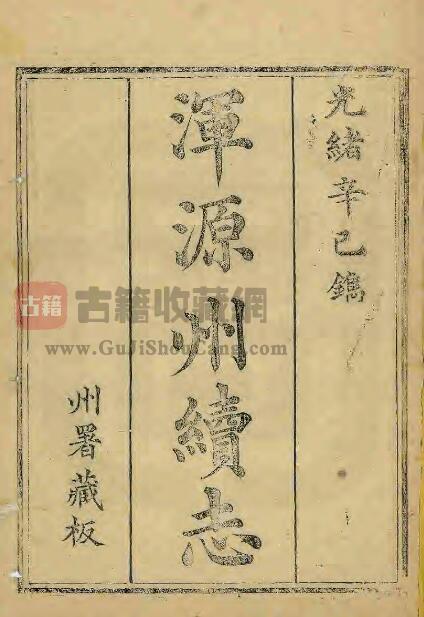 光緒辛巳鐫
渾源州續志
州署藏板
古籍 古籍收藏網
www.GuJiShouCang.com